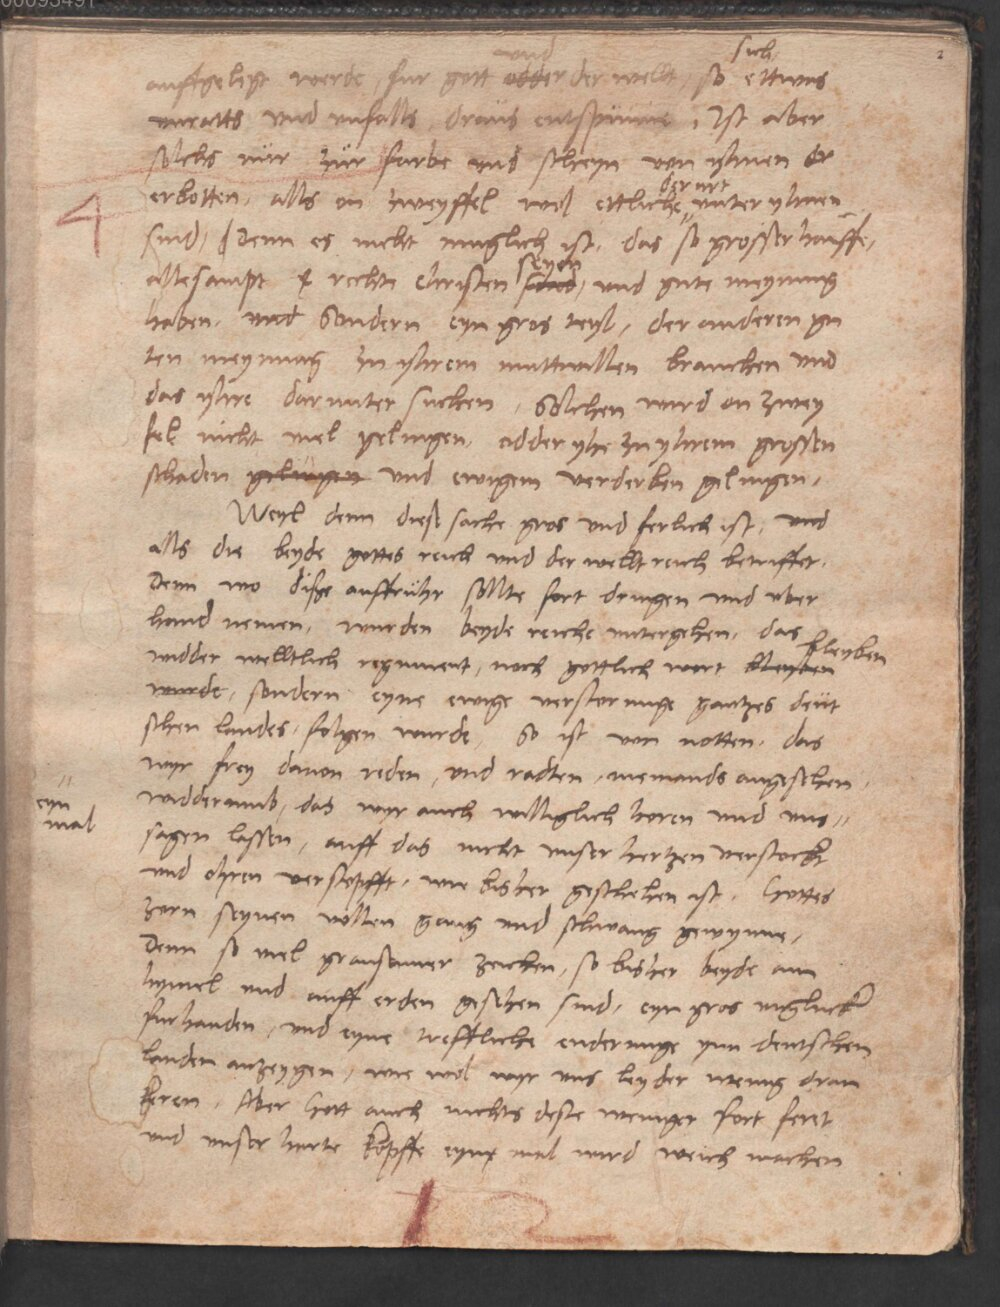 00093491
2
und sich
auffgelegt werde, fur gott odder der wellt, so ettwas
unratts und unfalls draus entspünne, Ist aber
solchs nür zür farbe und scheyn von yhnen er
4
der art
erbotten, alls on zweyffel wol ettliche unter yhnen
sind, Denn es nicht muglich ist, das so grosser hauffe,
seyen
allesampt rechte Christen sind, und gute meynung
haben, und Sondern eyn gros teyl, der anderen gu
ten meynung zu yhrem muttwillen brauchen und
das yhre darunter suchen, Solchen wird on zwey
fel nicht viel gelingen, odder yhe zu yhrem grossen
schaden gelingen und ewigem verderben gelingen,
Weyl denn diese sache gros und ferlich ist, und
alls die beyde gottes reich und der wellt reich betriffet,
Denn wo diße auffrühr sollte fort dringen und uber
hand nemen, wurden beyde reiche untergehen, das
bleyben
widder welltlich regiment, noch gottlich wort bleyben
wurde, sondern eyne ewige verstorunge gantzes deüt
schen landes, folgen wurde, So ist von notten, das
wyr frey davon reden, und radten, niemands angesehen,
eyn
mal
widderumb, das wyr auch williglich horen und uns
sagen lassen, auff das nicht unser hertzen verstockt
und ohren verstopfft, wie bisher geschehen ist, Gottes
zorn seynen vollen gang und schwang gewynne,
Denn so viel grausamer zeichen, so bisher beyde am
hymel und auff erden gesehen sind, eyn gros ungluck
furhanden, und eyne treffliche enderunge ynn deutschen
landen anzeygen, wie wol wyr uns leyder wenig dran
keren, Aber Gott auch nichts deste weniger fort feret
und unser harte köpffe eyn mal wird weich machen